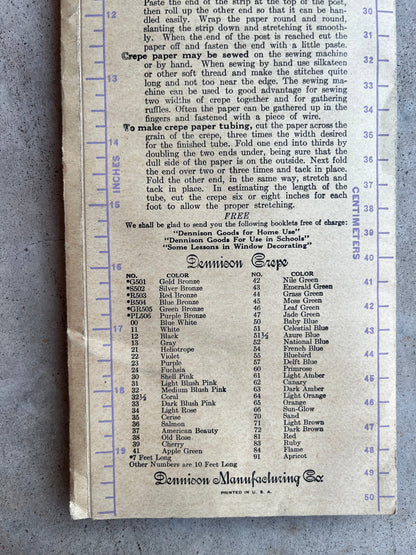 Paste the end of the strip at the top of the post,
then roll up the other end so that it can be han-
dled easily. Wrap the paper round and round,
slanting the strip down and stretching it smooth-
ly. When the end of the post is reached cut the
paper off and fasten the end with a little paste.
Crepe paper may be sewed on the sewing machine
or by hand. When sewing by hand use silkateen
or other soft thread and make the stitches quite
long and not too near the edge. The sewing ma-
chine can be used to good advantage for sewing
two widths of crepe together and for gathering
ruffles. Often the paper can be gathered up in the
fingers and fastened with a piece of wire.
To make crepe paper tubing, cut the paper across the
grain of the crepe, three times the width desired
for the finished tube. Fold one end into thirds by
doubling the two ends under, being sure that the
dull side of the paper is on the outside. Next fold
the end over two or three times and tack in place.
Fold the other end, in the same way, stretch and
tack in place. In estimating the length of the
tube, cut the crepe six or eight inches for each
foot to allow the proper stretching.
FREE
We shall be glad to send you the following booklets free of charge:
"Dennison Goods for Home Use"
"Dennison Goods For Use in Schools"
"Some Lessons in Window Decorating"
Dennison Crepe
NO. COLOR
*G501 Gold Bronze
*S502 Silver Bronze
*R503 Red Bronze
*B504 Blue Bronze
*GR505 Green Bronze
*PL506 Purple Bronze
00 Blue White
11 White
12 Black
13 Gray
21 Heliotrope
22 Violet
23 Purple
24 Fuchsia
30 Shell Pink
31 Light Blush Pink
32 Medium Blush Pink
32½ Coral
33 Dark Blush Pink
34 Light Rose
35 Cerise
36 Salmon
37 American Beauty
38 Old Rose
39 Cherry
41 Apple Green
*7 Feet Long
Other Numbers are 10 Feet Long
NO. COLOR
42 Nile Green
43 Emerald Green
44 Grass Green
45 Moss Green
46 Leaf Green
47 Jade Green
50 Baby Blue
51 Celestial Blue
51½ Azure Blue
52 National Blue
54 French Blue
55 Bluebird
57 Delft Blue
60 Primrose
61 Light Amber
62 Canary
63 Dark Amber
64 Light Orange
65 Orange
66 Sun-Glow
70 Sand
71 Light Brown
72 Dark Brown
81 Red
83 Ruby
84 Flame
91 Apricot
Dennison Manufacturing Co.
PRINTED IN U. S. A.
12
13
14
INCHES
15
16
17
18
19
30
31
32
33
34
35
36
37
CENTIMETERS
39
40
41
42
43
44
45
46
47
48
49
50